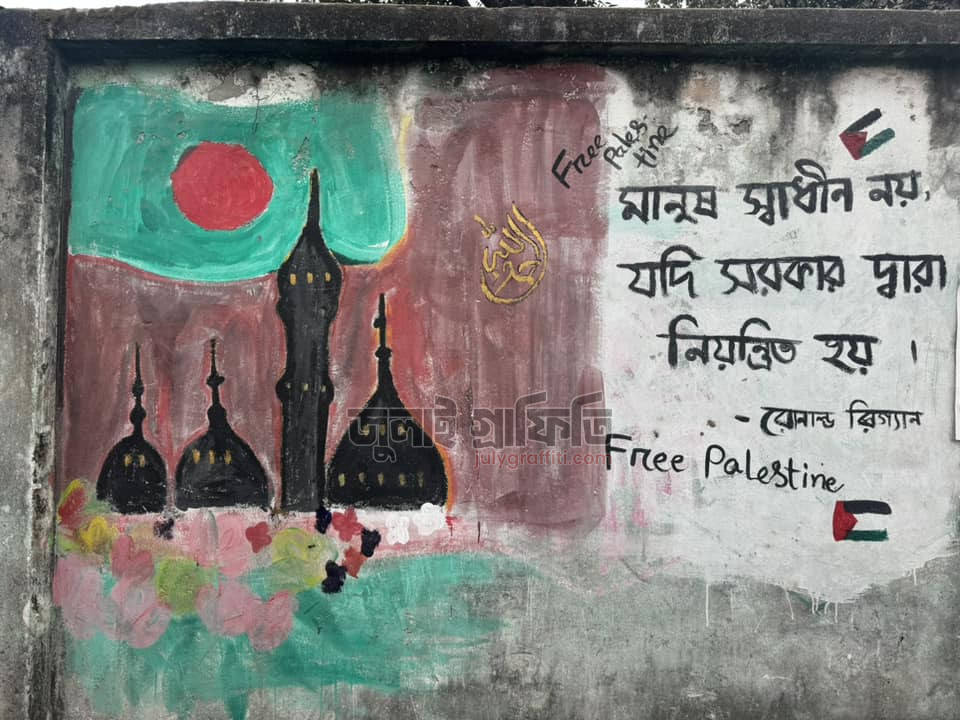 Free
Pales-
tine
মানুষ স্বাধীন নয়,
যদি সরকার দ্বারা
নিয়ন্ত্রিত হয় ।
- রোনাল্ড রিগ্যান
জুলাই গ্রাফিতি
julygraffiti.com
Free Palestine